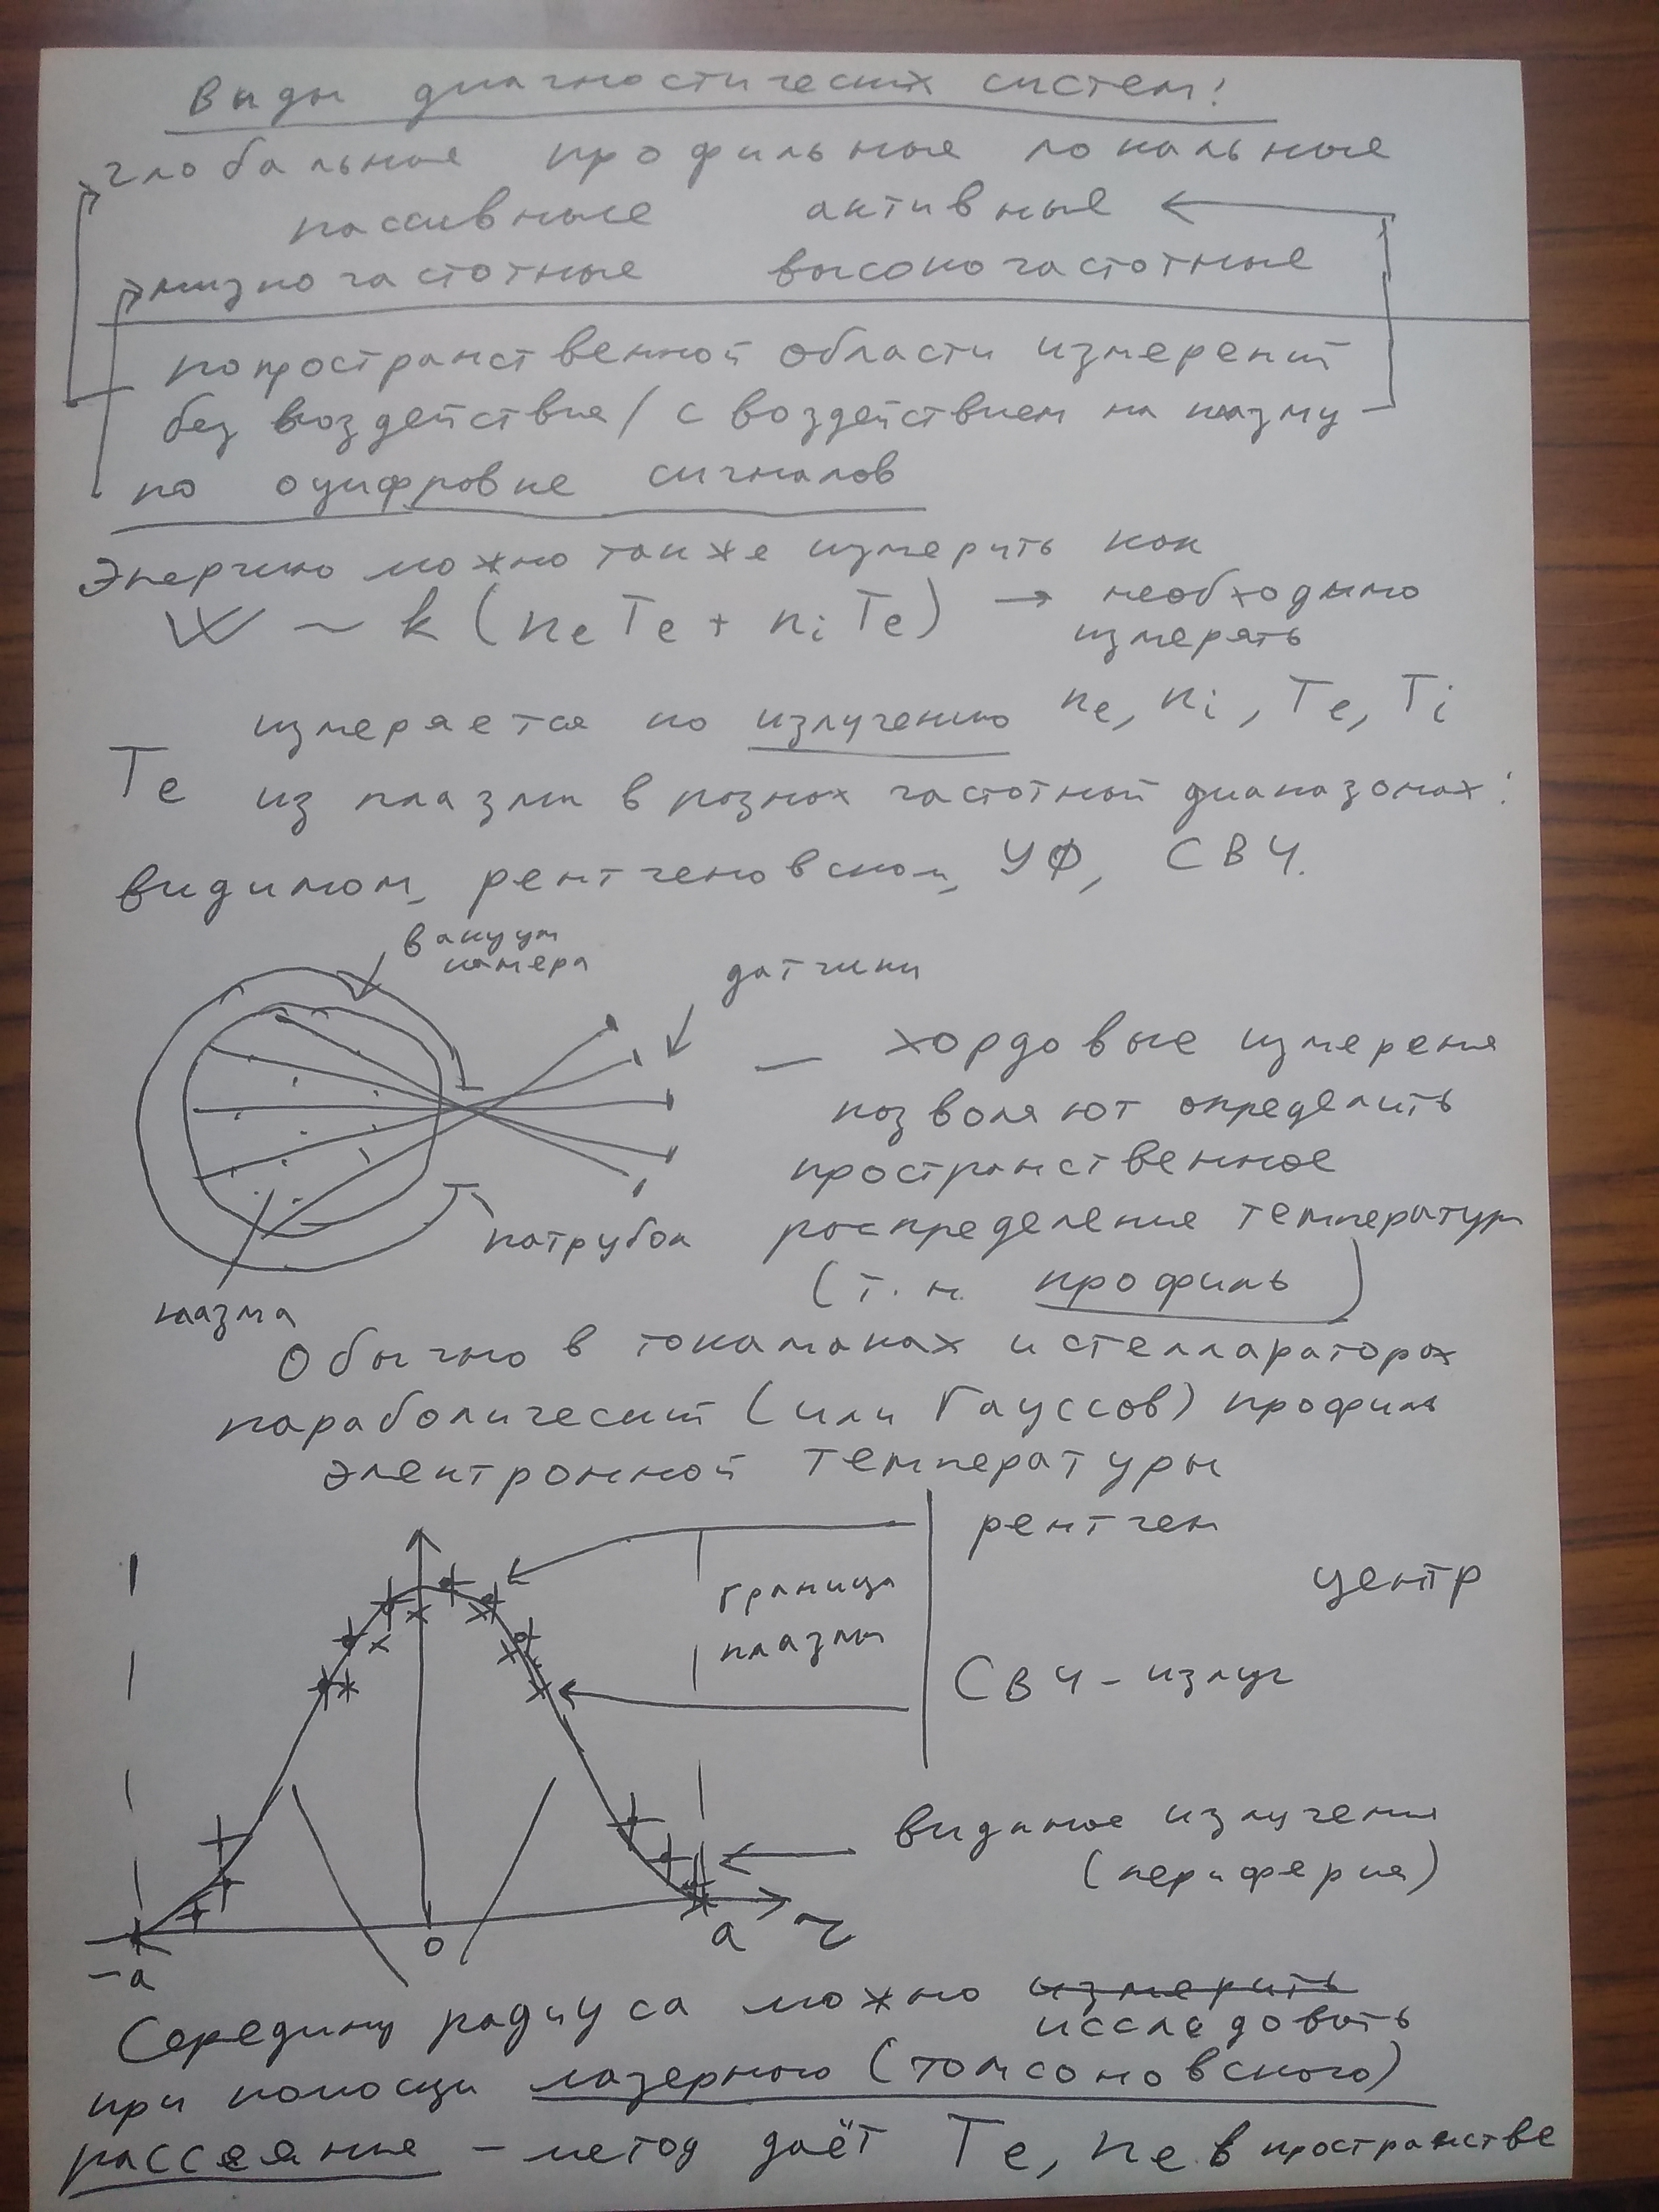 Виды диагностических систем:
глобальные профильные локальные
пассивные активные
низкочастотные высокочастотные
по пространственной области измерений
без воздействия / с воздействием на плазму
по оцифровке сигналов
Энергию можно также измерить как
W ~ k (ne Te + ni Te) → необходимо
измерять
ne, ni, Te, Ti
измеряется по излучению
Te из плазмы в разных частотной диапазонах:
видимом, рентгеновском, УФ, СВЧ.
вакуум
камера
датчики
— хордовые измерения
позволяют определить
пространственное
распределение температуры
(т.н. профиль)
патрубок
плазма
Обычно в токамаках и стеллараторах
параболический (или Гауссов) профиль
электронной температуры
рентген
центр
граница
плазмы
СВЧ-излуч
видимое излучение
(периферия)
-a
0
a
r
Середину радиуса можно измерить
исследовать
при помощи лазерного (томсоновского)
рассеяние – метод даёт Te, ne в пространстве